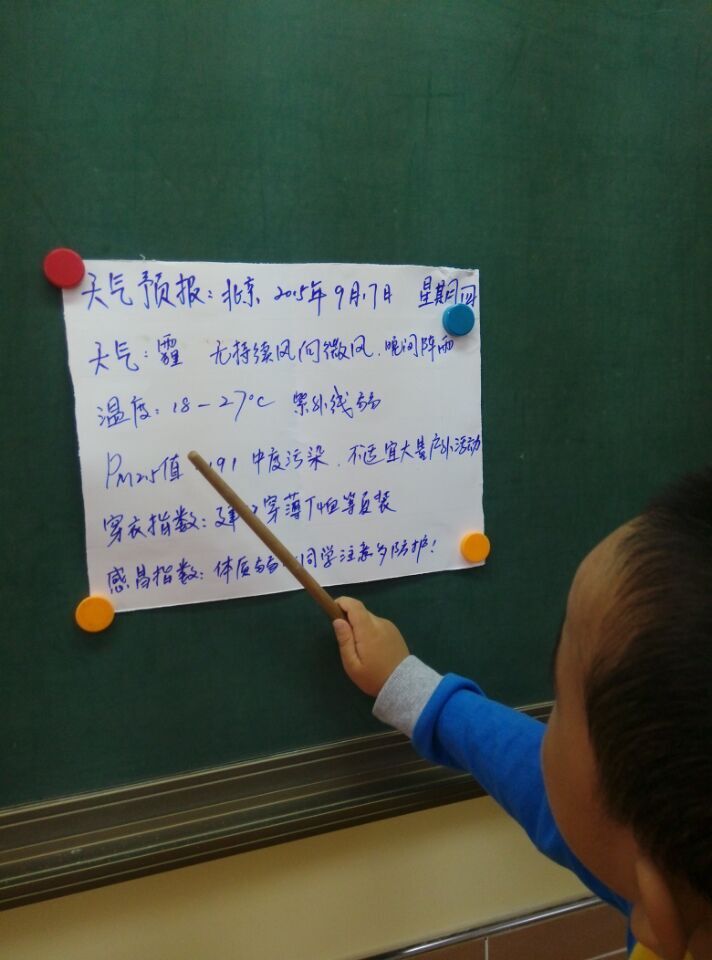 天气预报：北京 2015年9月17日 星期四
天气：霾 无持续风向微风，晚间阵雨
温度：18-27℃ 紫外线弱
PM2.5值 191 中度污染．不适宜大量户外活动
穿衣指数：建 穿薄T恤等夏装
感冒指数：体质弱 同学注意多防护！